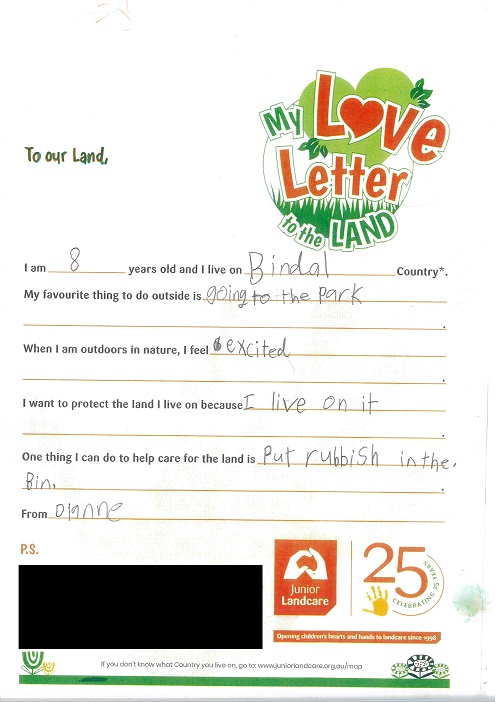 My Love
Letter
to the LAND
To our Land,
I am 8 years old and I live on Bindal Country*.
My favourite thing to do outside is going to the park
.
When I am outdoors in nature, I feel excited
.
I want to protect the land I live on because I live on it
.
One thing I can do to help care for the land is Put rubbish in the.
Bin. .
From Dianne
P.S.
Junior
Landcare
25
CELEBRATING 25 YEARS
Opening children's hearts and hands to landcare since 1998
If you don't know what Country you live on, go to: www.juniorlandcare.org.au/map